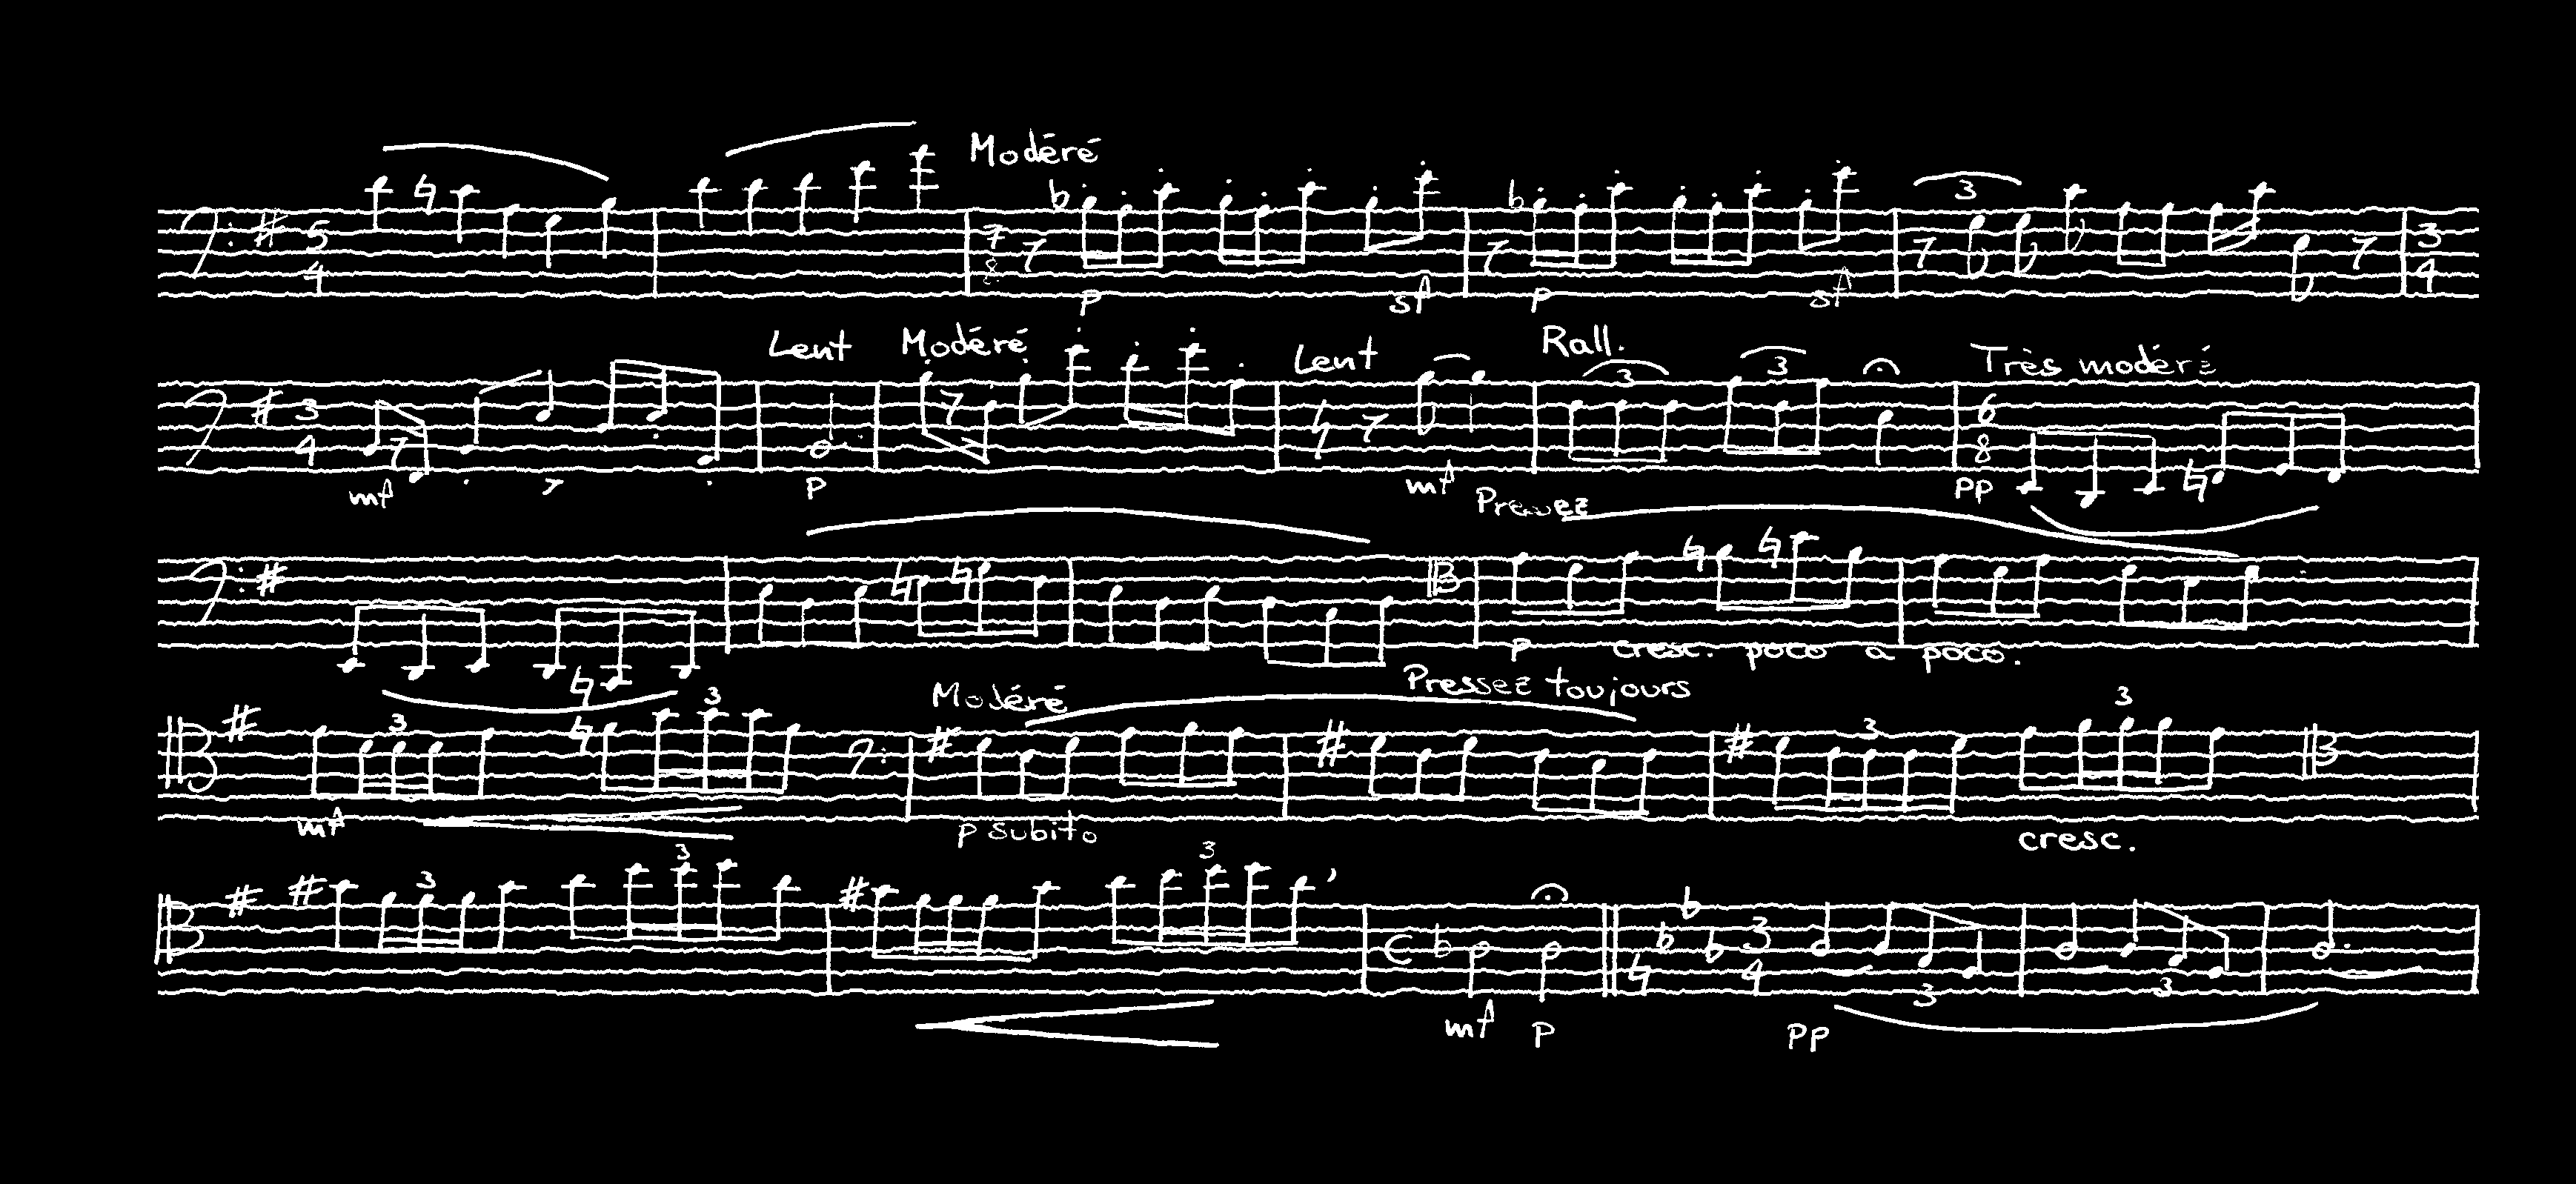 Modéré
3
5 7 3
4 8 4
p sf p sf
Lent Modéré Lent Rall. Très modéré
3 3
3 6
4 8
mf p mf pp
Pressez
p cresc. poco a poco.
Modéré Pressez toujours
3 3 3 3
mf p subito cresc.
3 3 3
3
4
3 3
mf p pp